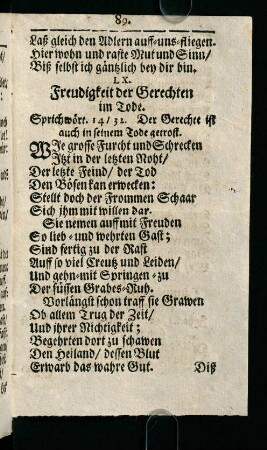 89.
Laß gleich den Adlern auff-uns-fliegen.
Hier wohn und raste Mut und Sinn/
Biß selbst ich gäntzlich bey dir bin.
LX.
Freudigkeit der Gerechten
im Tode.
Sprichwört. 14/32. Der Gerechte ist
auch in seinem Tode getrost.
WIe grosse Furcht und Schrecken
Itzt in der letzten Noht/
Der letzte Feind/ der Tod
Den Bösen kan erwecken:
Stellt doch der Frommen Schaar
Sich jhm mit willen dar.
Sie nemen auff mit Freuden
So lieb- und wehrten Gast;
Sind fertig zu der Rast
Auff so viel Creutz und Leiden/
Und gehn-mit Springen-zu
Der süssen Grabes-Ruh.
Vorlängst schon traff sie Grawen
Ob allem Trug der Zeit/
Und jhrer Nichtigkeit;
Begehrten dort zu schawen
Den Heiland/ dessen Blut
Erwarb das wahre Gut. Diß